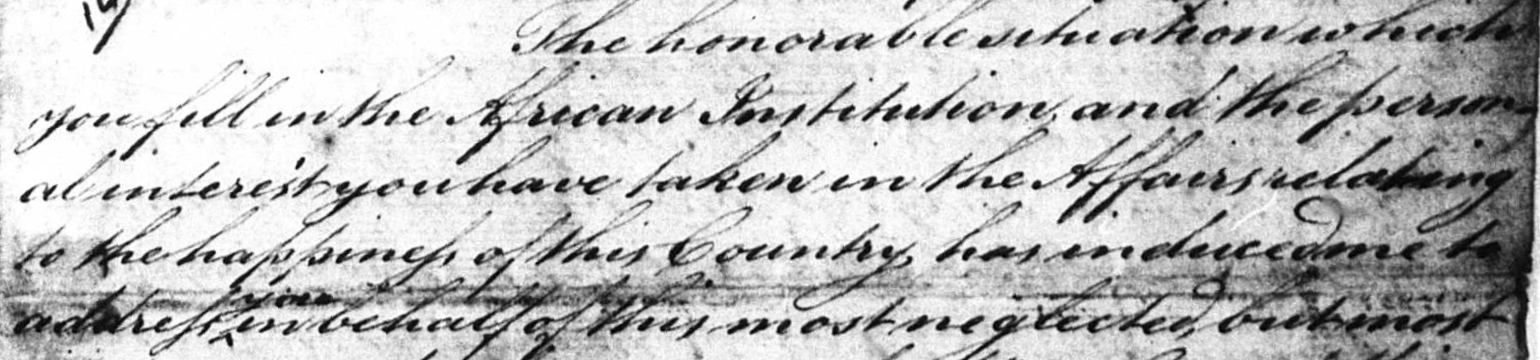 The honorable situation which
you fill in the African Institution, and the person-
al interest you have taken in the Affairs relating
to the happiness of this Country, has induced me to
address you in behalf of this most neglected, but most